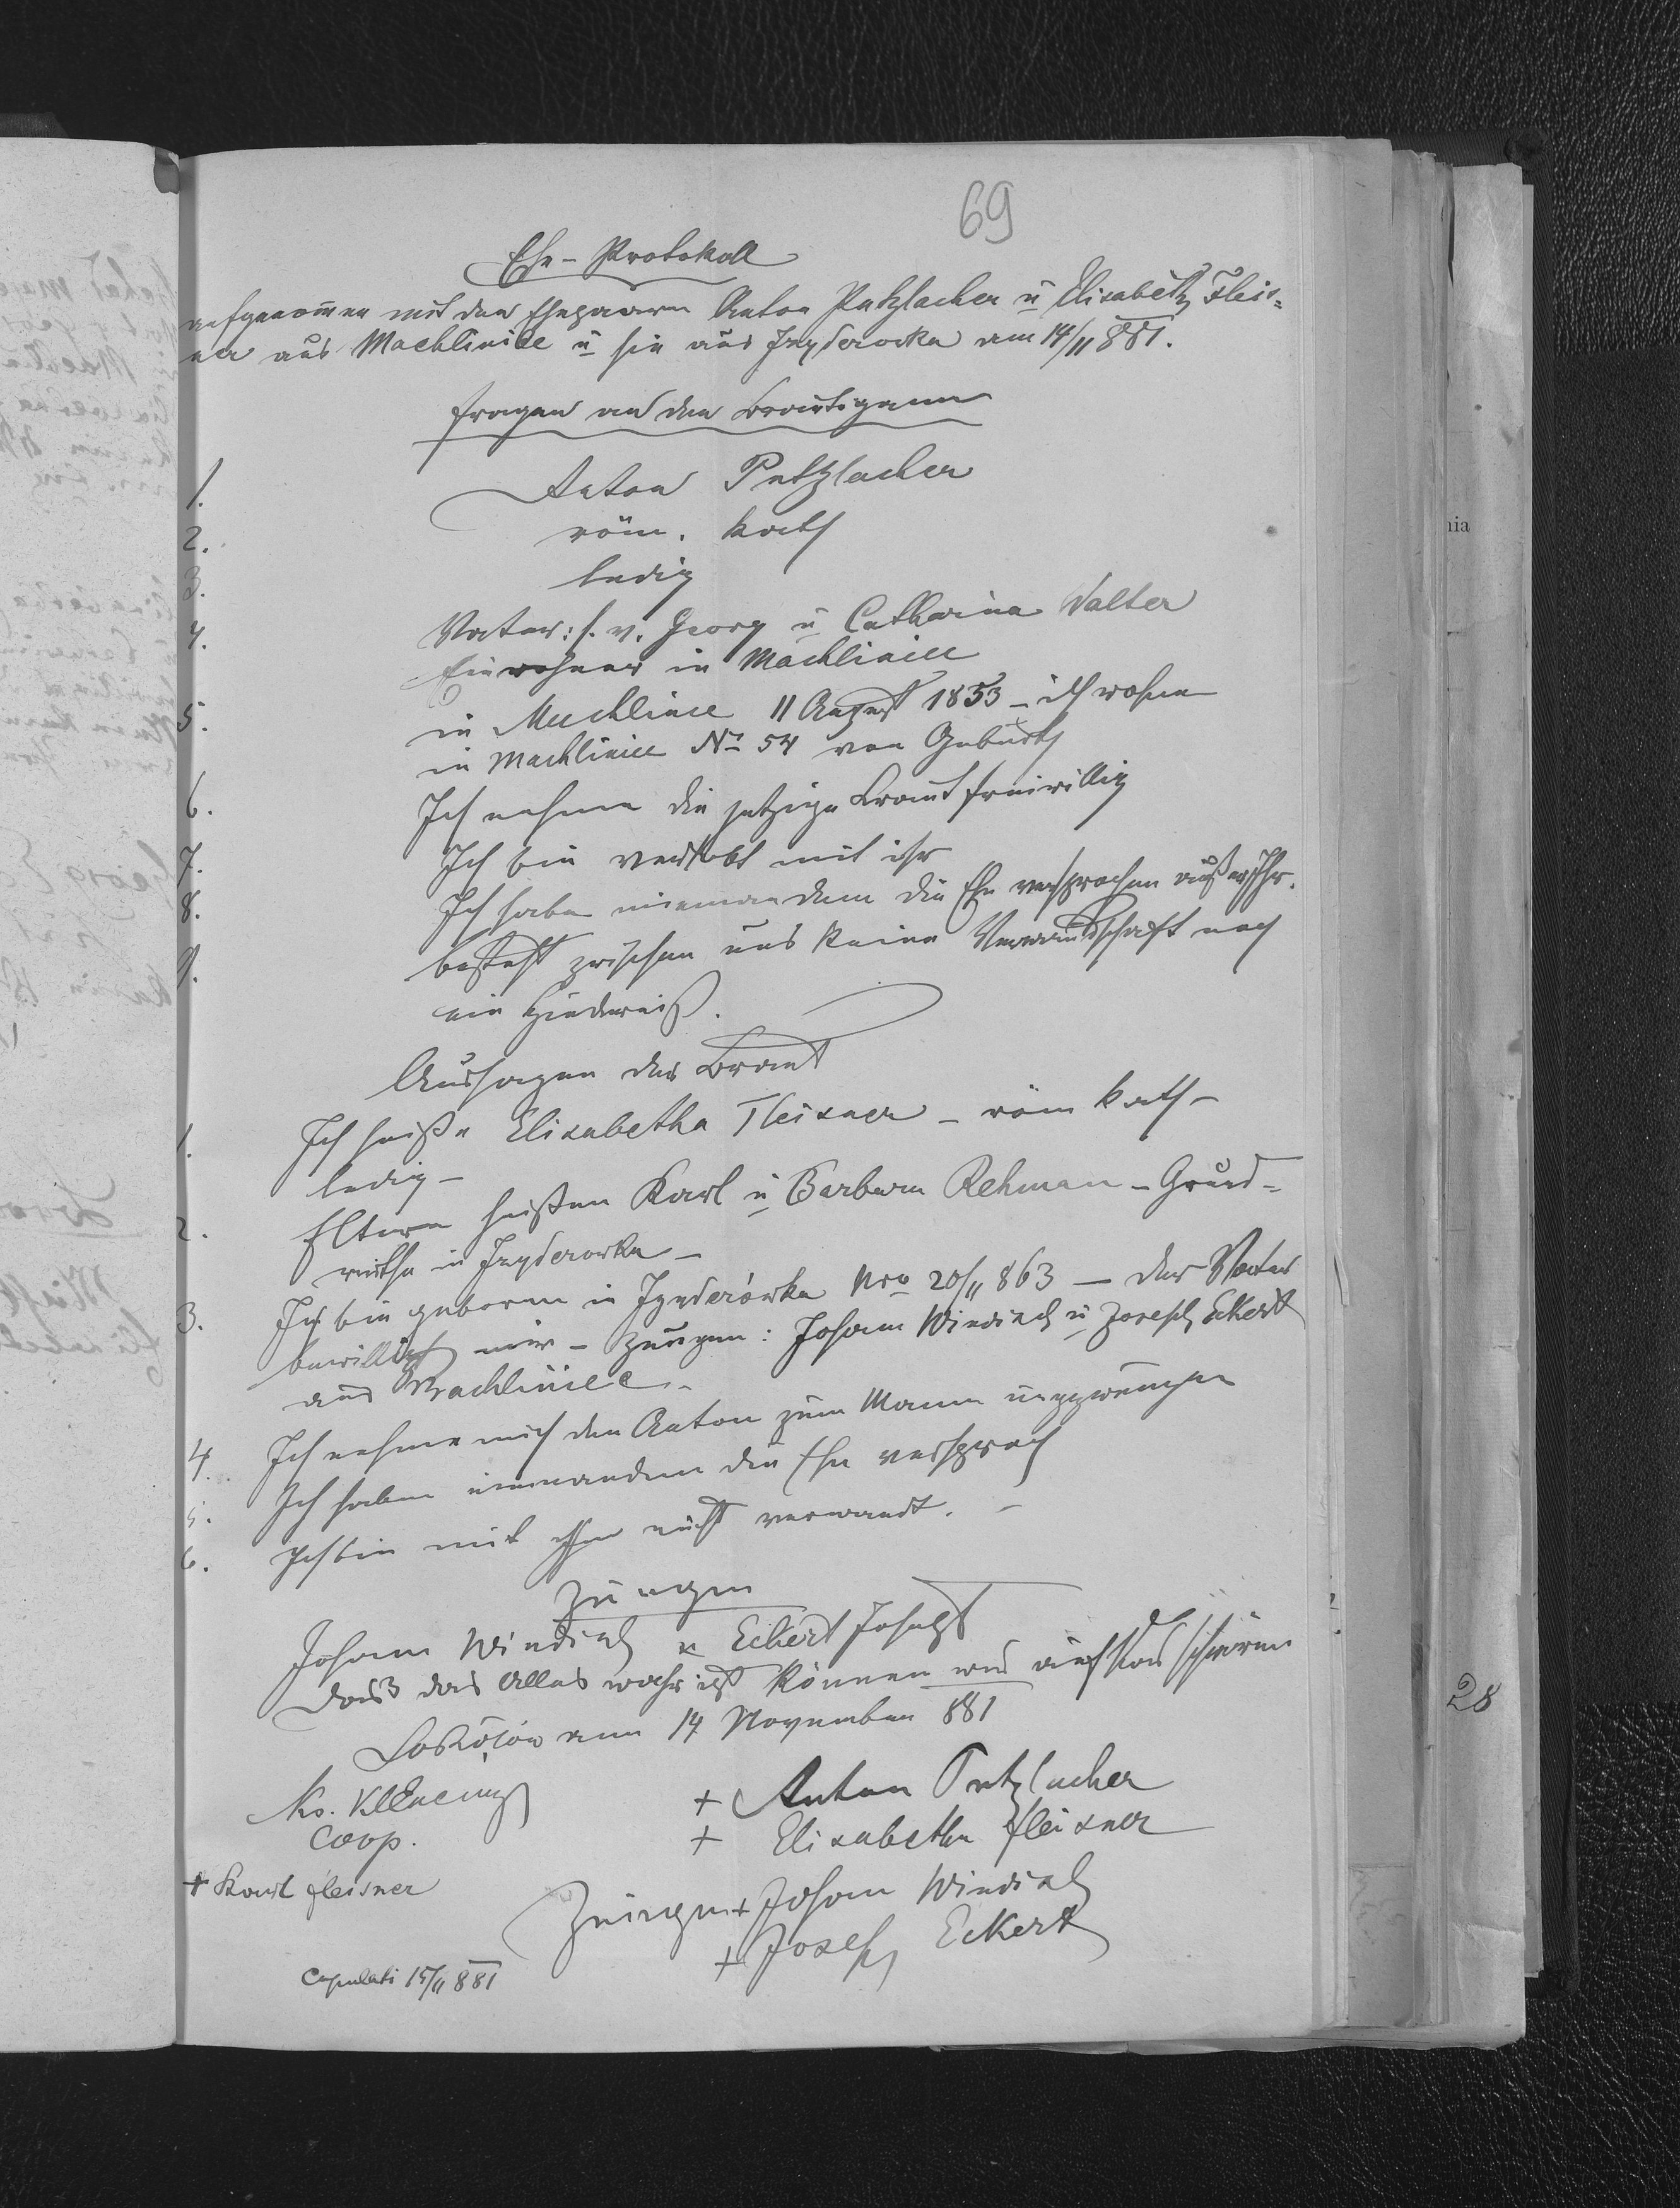 69
Ehe-Protokoll
aufgenom̄en mit den Ehepaaren Anton Putzlacher u Elisabeth Fleis=
ner aus Machliniec u sie aus Izyderowka am 14/11 881.
Fragen an den Bräutigam
1. Anton Putzlacher
2. röm. kath
3. ledig
4. Vater: s. v. Georg u Catharina Walter
Einwohner in Machliniec
5. in Machliniec 11 August 1853 – ich wohne
in Machliniec No 54 von Geburth
6. Ich nehme die jetzige Braut freiwillig
7. Ich bin verlobt mit ihr
8. Ich habe niemandem die Ehe versprochen außer Ihr.
9. besteht zwischen uns keine Verwandschaft noch
ein Hinderniß.
Aussagen der Braut
1. Ich heiße Elisabetha Fleisner – röm kath –
ledig –
2. Eltern heißen Karl u Barbara Rehman – Grund=
wirthe in Izyderowka –
3. Ich bin geboren in Izyderówka Nro 20/11 863 – der Vater
bewilligt mir – Zeugen: Johann Windisch u Joseph Eckert
aus Machliniec.
4. Ich nehme mich den Anton zum Mann ungezwungen
5. Ich habe niemandem die Ehe versproch
6. Ich bin mit ihm nicht verwandt. –
Zeugen
Johann Windisch u Eckert Joseph
Dass das Alles wahr ist können wir auch schwören
am 14 November 881
Ks.
Coop.
+ Anton Putzlacher
+ Elisabetha Fleisner
+ Karl Fleisner
Zeugen + Johann Windisch
+ Joseph Eckert
Copulati 15/11 881
nia
28